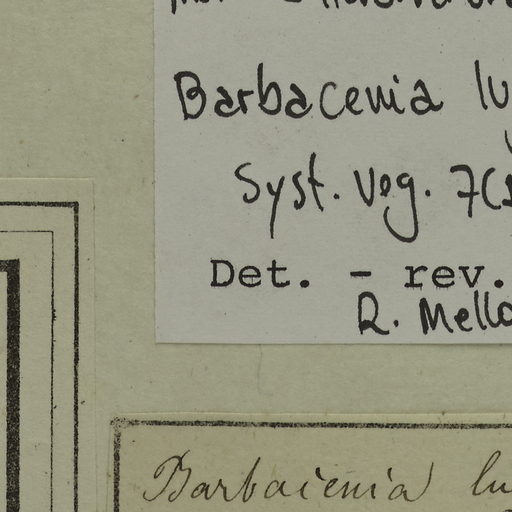 Barbacenia lu
Syst. Veg. 7(
Det. - rev.
R. Mello
Barbacenia lu